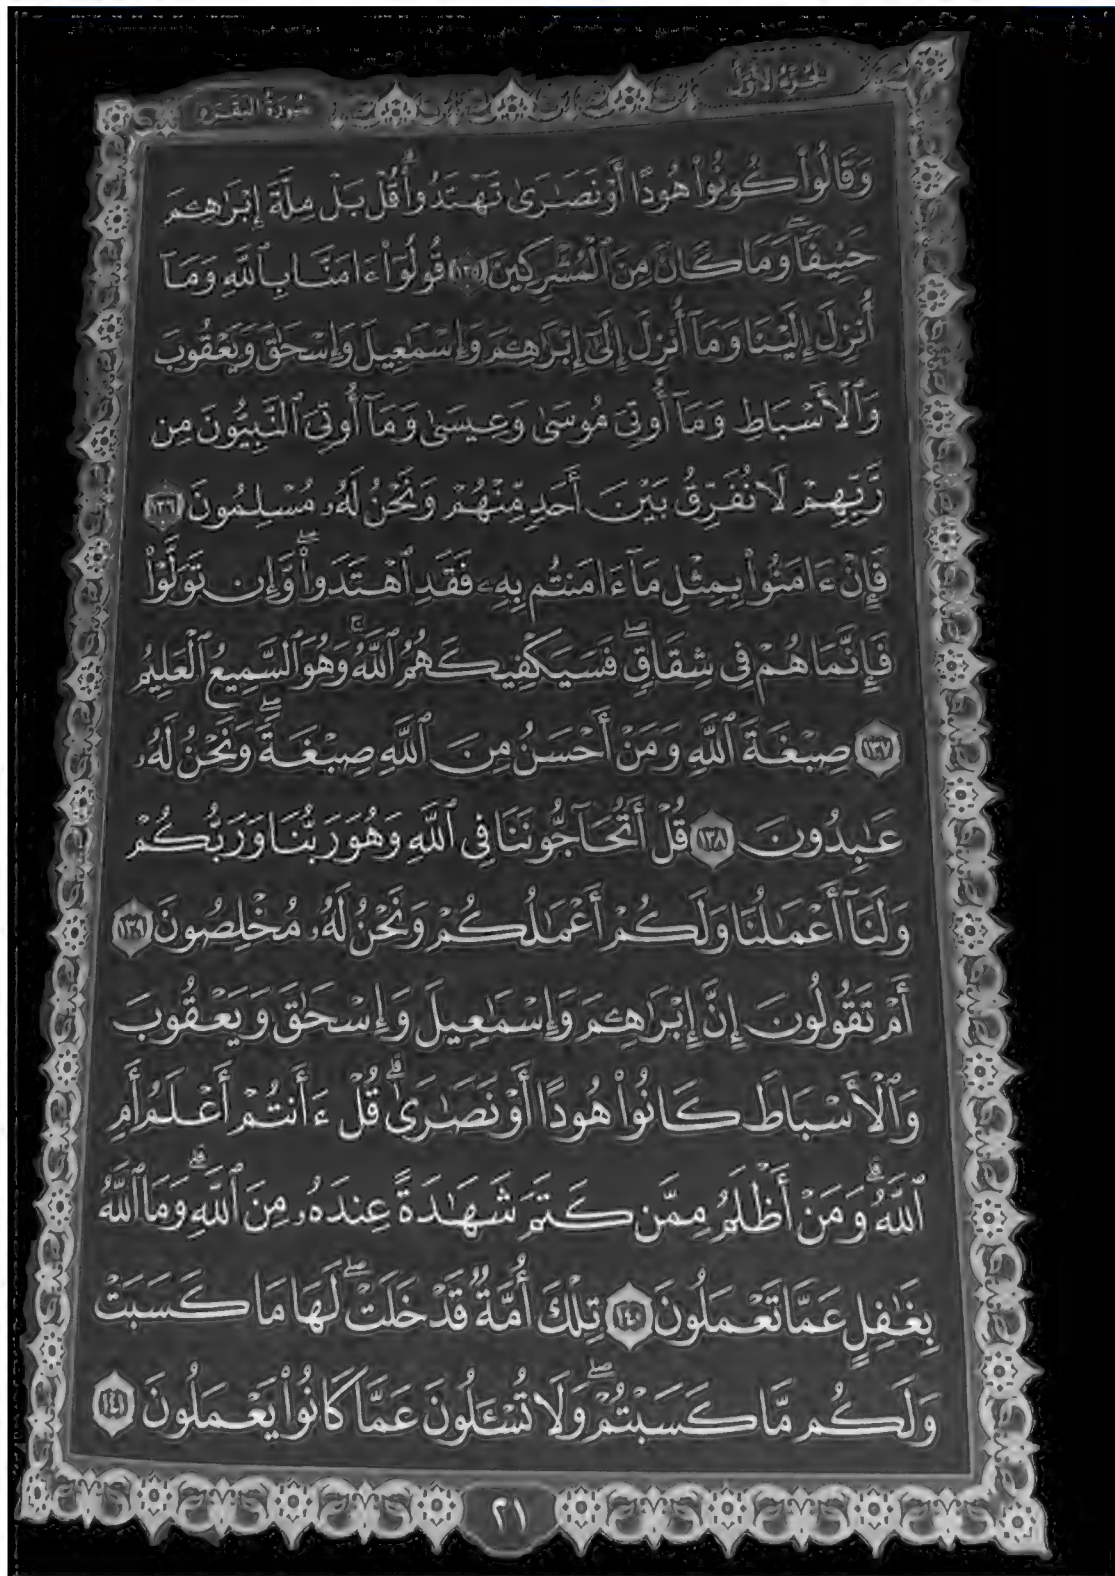 الجزء الأول
سورة البقرة
وَقَالُوا۟ كُونُوا۟ هُودًا أَوْ نَصَـٰرَىٰ تَهْتَدُوا۟ ۗ قُلْ بَلْ مِلَّةَ إِبْرَٰهِـۧمَ
حَنِيفًا ۖ وَمَا كَانَ مِنَ ٱلْمُشْرِكِينَ ١٣٥ قُولُوٓا۟ ءَامَنَّا بِٱللَّهِ وَمَآ
أُنزِلَ إِلَيْنَا وَمَآ أُنزِلَ إِلَىٰٓ إِبْرَٰهِـۧمَ وَإِسْمَـٰعِيلَ وَإِسْحَـٰقَ وَيَعْقُوبَ
وَٱلْأَسْبَاطِ وَمَآ أُوتِىَ مُوسَىٰ وَعِيسَىٰ وَمَآ أُوتِىَ ٱلنَّبِيُّونَ مِن
رَّبِّهِمْ لَا نُفَرِّقُ بَيْنَ أَحَدٍ مِّنْهُمْ وَنَحْنُ لَهُۥ مُسْلِمُونَ ١٣٦
فَإِنْ ءَامَنُوا۟ بِمِثْلِ مَآ ءَامَنتُم بِهِۦ فَقَدِ ٱهْتَدَوا۟ ۖ وَّإِن تَوَلَّوْا۟
فَإِنَّمَا هُمْ فِى شِقَاقٍ ۖ فَسَيَكْفِيكَهُمُ ٱللَّهُ ۚ وَهُوَ ٱلسَّمِيعُ ٱلْعَلِيمُ
١٣٧ صِبْغَةَ ٱللَّهِ وَمَنْ أَحْسَنُ مِنَ ٱللَّهِ صِبْغَةً ۖ وَنَحْنُ لَهُۥ
عَـٰبِدُونَ ١٣٨ قُلْ أَتُحَآجُّونَنَا فِى ٱللَّهِ وَهُوَ رَبُّنَا وَرَبُّكُمْ
وَلَنَآ أَعْمَـٰلُنَا وَلَكُمْ أَعْمَـٰلُكُمْ وَنَحْنُ لَهُۥ مُخْلِصُونَ ١٣٩
أَمْ تَقُولُونَ إِنَّ إِبْرَٰهِـۧمَ وَإِسْمَـٰعِيلَ وَإِسْحَـٰقَ وَيَعْقُوبَ
وَٱلْأَسْبَاطَ كَانُوا۟ هُودًا أَوْ نَصَـٰرَىٰ ۗ قُلْ ءَأَنتُمْ أَعْلَمُ أَمِ
ٱللَّهُ ۗ وَمَنْ أَظْلَمُ مِمَّن كَتَمَ شَهَـٰدَةً عِندَهُۥ مِنَ ٱللَّهِ ۗ وَمَا ٱللَّهُ
بِغَـٰفِلٍ عَمَّا تَعْمَلُونَ ١٤٠ تِلْكَ أُمَّةٌ قَدْ خَلَتْ ۖ لَهَا مَا كَسَبَتْ
وَلَكُم مَّا كَسَبْتُمْ ۖ وَلَا تُسْـَٔلُونَ عَمَّا كَانُوا۟ يَعْمَلُونَ ١٤١
٢١